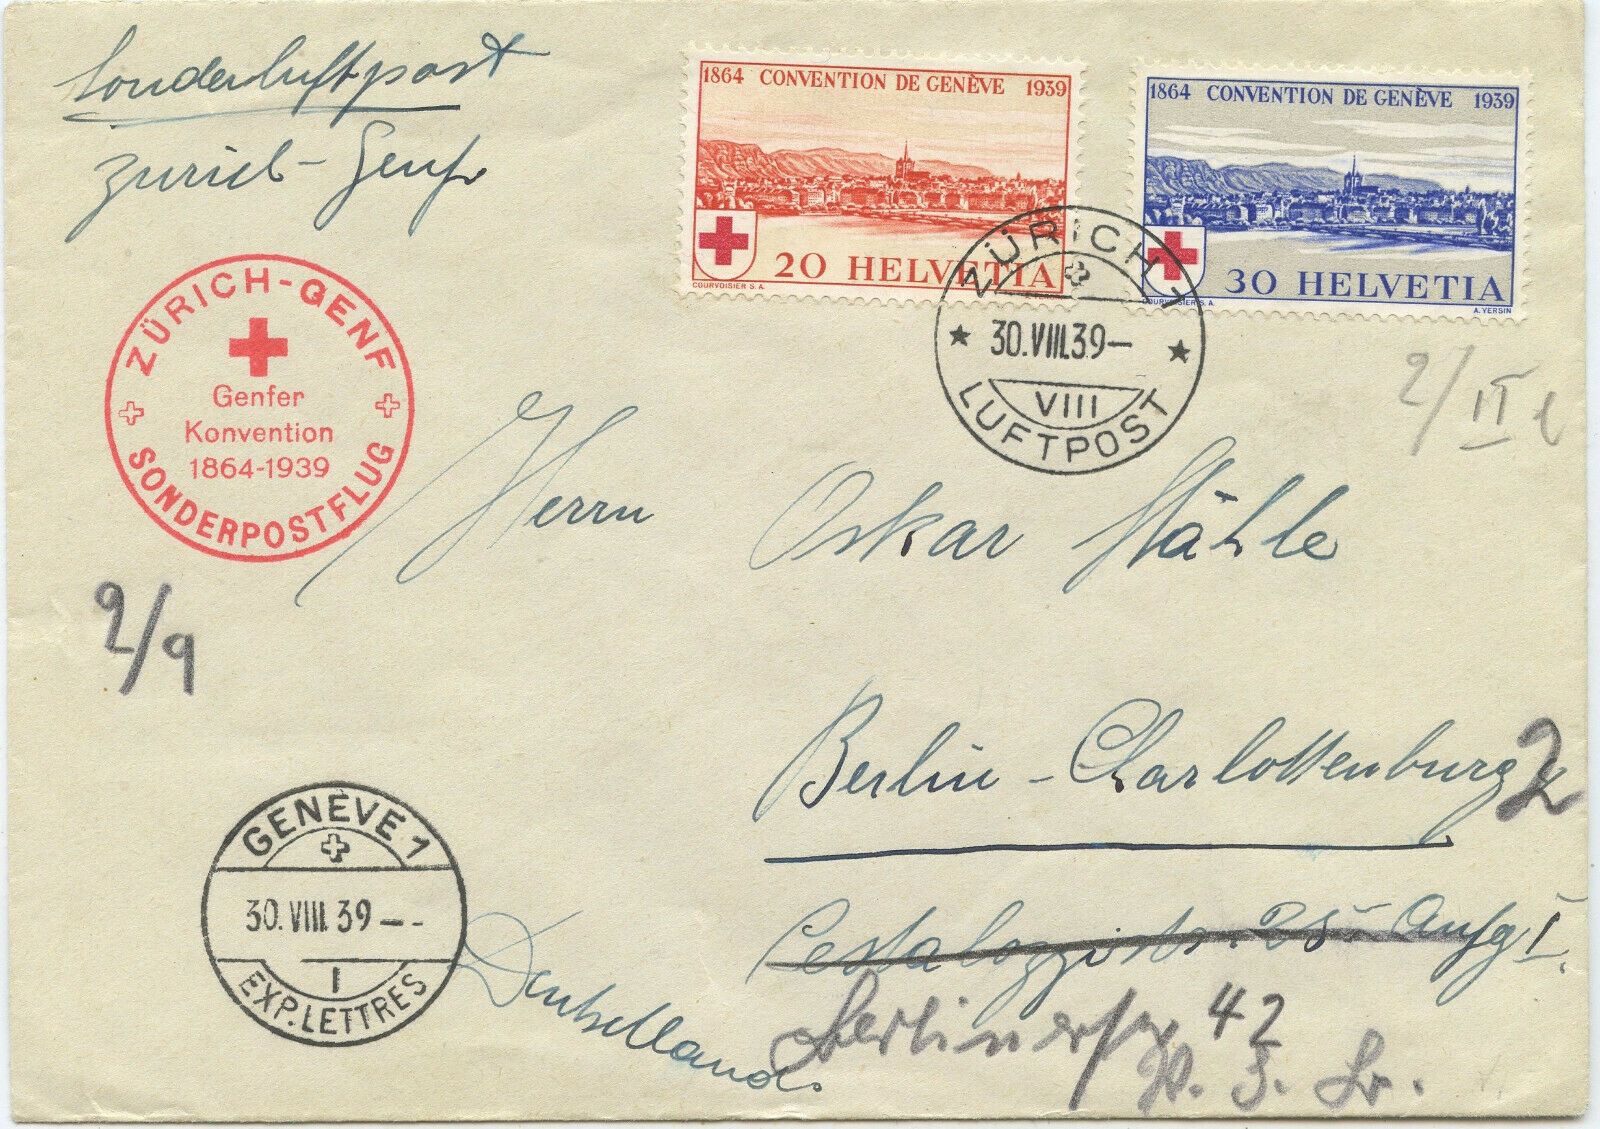 Sonderluftpost
Zürich-Genf
1864 CONVENTION DE GENÈVE 1939
20 HELVETIA
COURVOISIER S.A.
1864 CONVENTION DE GENÈVE 1939
30 HELVETIA
COURVOISIER S.A.
A. YERSIN
ZÜRICH 1
30.VIII.39–
VIII
LUFTPOST
ZÜRICH-GENF
Genfer
Konvention
1864-1939
SONDERPOSTFLUG
Herrn Oskar Stähle
2/9
Berlin-Charlottenburg 2
Pestalozzistr. 25 Aufg I.
Berlinerstr 42
GENÈVE 1
30.VIII.39––
1
EXP. LETTRES
Deutschland.